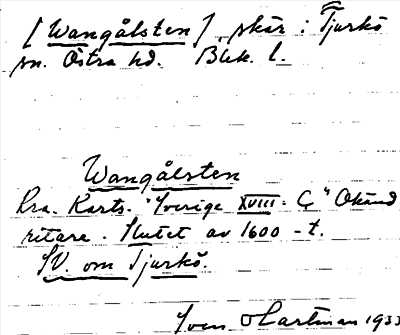 [Wangålsten], skär i Tjurkö
sn. Östra hd. Blek. l.
Wangålsten
Kra. Karts. "Sverige XVIII. Ç" Okänd
ritare. Slutet av 1600-t.
SV. om Tjurkö.
Sven Hartman 1933